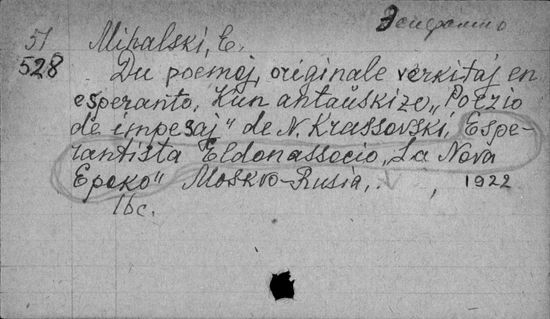 Эсперанто
51 Mihalski, E.
528 Du poemoj, originale verkitaj en
esperanto, Kun antaŭskizo „Poezio
de impesaj" de N. Krassovski, Espe-
rantista Eldonassocio „La Nova
Epoko" Moskvo-Rusia, . , 1922
16c.